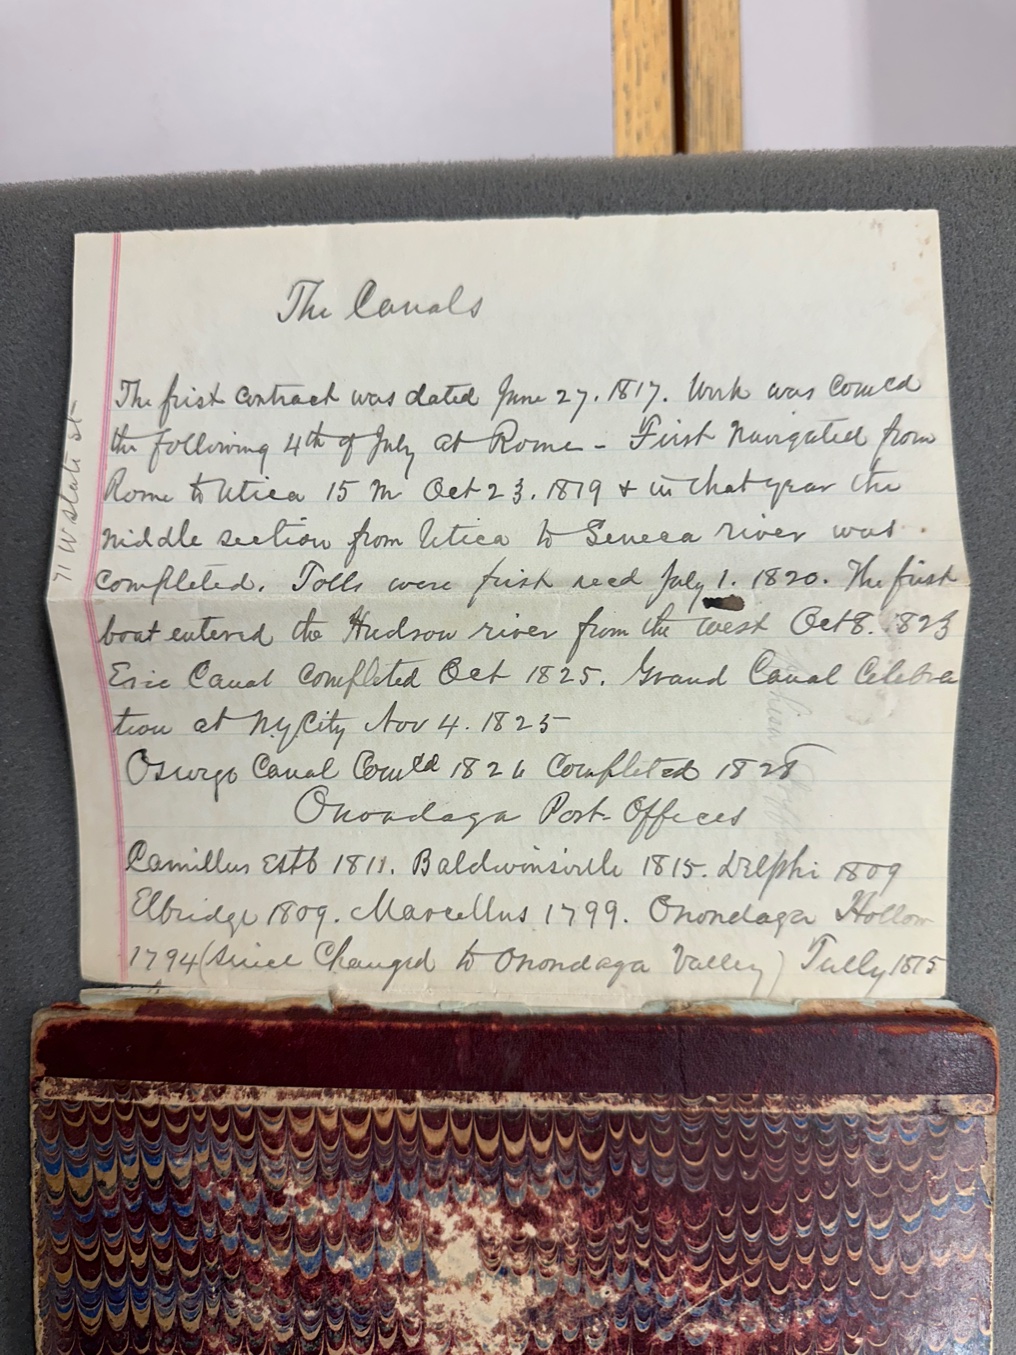 The Canals
The first contract was dated June 27. 1817. Work was Com'cd
the following 4th of July at Rome - First Navigated from
Rome to Utica 15 M Oct 23. 1819 & in that year the
middle section from Utica to Seneca river was
completed. Tolls were first recd July 1. 1820. The first
boat entered the Hudson river from the west Oct 8. 1823
Erie Canal Completed Oct 1825. Grand Canal Celebra
tion at N.Y. City Nov 4. 1825
Oswego Canal Com'cd 1826 Completed 1828
Onondaga Post-Offices
Camillus Estb 1811. Baldwinsville 1815. Delphi 1809
Elbridge 1809. Marcellus 1799. Onondaga Hollow
1794 (Since Changed to Onondaga Valley) Tully 1815
71 W State St